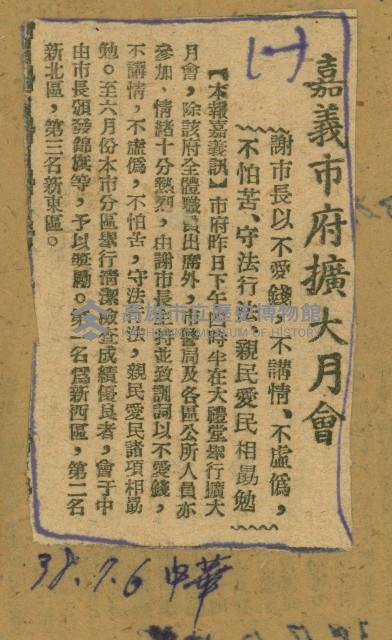 (一)
嘉義市府擴大月會
謝市長以不愛錢,不講情、不虛僞,
不怕苦、守法行法,親民愛民相勗勉
【本報嘉義訊】市府昨日下午 時半在大禮堂舉行擴大
月會,除該府全體職員出席外,市警局及各區公所人員亦
參加,情緒十分熱烈,由謝市長主持並致訓詞以不愛錢,
不講情,不虛僞,不怕苦,守法行法,親民愛民諸項相勗
勉。至六月份本市分區舉行清潔檢查成績優良者,會于中
由市長頒發錦旗等,予以獎勵。第一名爲新西區,第二名
新北區,第三名新東區。
高雄市立歷史博物館
KAOHSIUNG MUSEUM OF HISTORY
38.7.6 中華